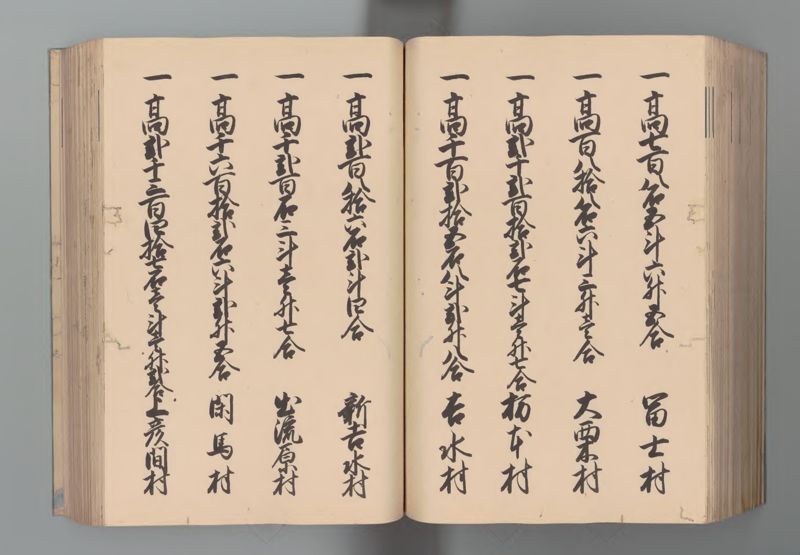 一 高七百八石五斗六升五合 冨士村
一 高百八拾八石六斗三升壱合 大栗村
一 高弐千弐百拾弐石七斗壱升七合 栃本村
一 高千百弐拾五石八斗弐升八合 吉水村
一 高弐百八拾六石弐斗四合 新吉水村
一 高千弐百石三斗壱升七合 出流原村
一 高千六百拾弐石六斗弐升五合 閑馬村
一 高弐千三百四拾石壱斗壱升弐合 上彦間村